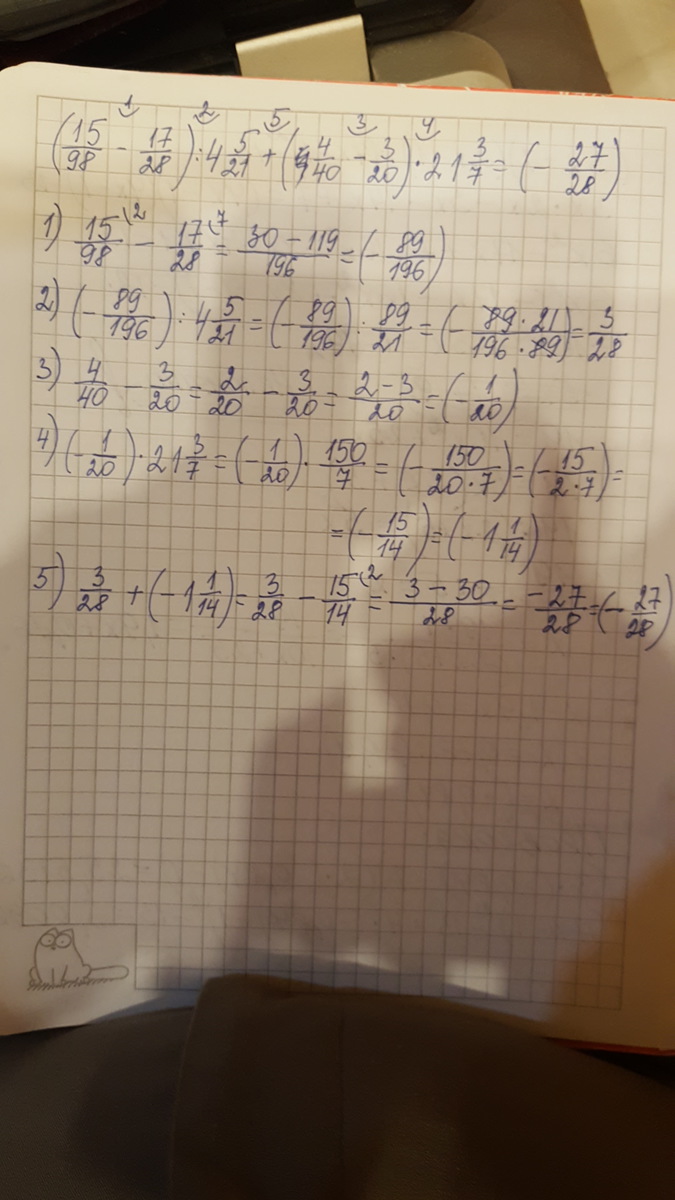 1 2 5 3 4
(15/98 - 17/28) : 4 5/21 + (4/40 - 3/20) · 21 3/7 = (- 27/28)
1) 15/98 \2 - 17/28 \7 = 30 - 119/196 = (- 89/196)
2) (- 89/196) : 4 5/21 = (- 89/196) : 89/21 = (- 89 · 21/196 · 89) = 3/28
3) 4/40 - 3/20 = 2/20 - 3/20 = 2 - 3/20 = (- 1/20)
4) (- 1/20) · 21 3/7 = (- 1/20) · 150/7 = (- 150/20 · 7) = (- 15/2 · 7) =
= (- 15/14) = (- 1 1/14)
5) 3/28 + (- 1 1/14) = 3/28 - 15/14 \2 = 3 - 30/28 = -27/28 = (- 27/28)